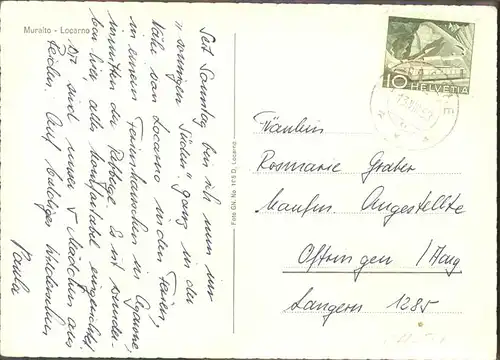 Muralto - Locarno
Seit Sonntag bin ich nun im
"sonnigen Süden" ganz in der
Nähe von Locarno in den Ferien,
in einem Ferienhäuschen in
inmitten der Es ist wunder-
bar hier, alles komfortabel eingerichtet.
Wir sind unser 5 Mädchen aus
Auf baldiges Wiedersehen
Paula
Foto GN. No 115 D. Locarno
10 HELVETIA
Fräulein
Rosmarie Graber
Kaufm. Angestellte
Oftringen /Aarg
Langern 1285